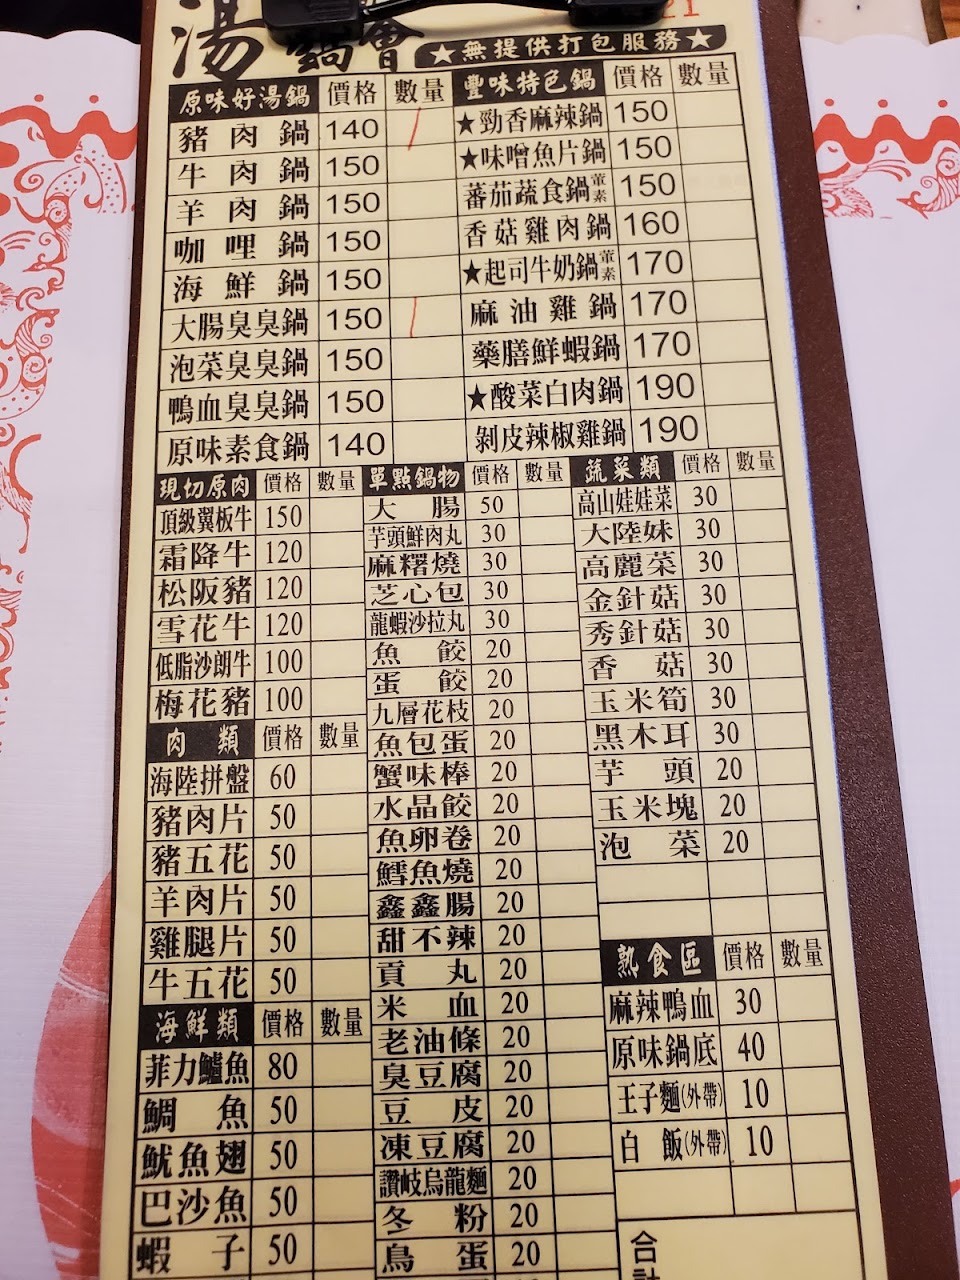 湯鍋會
21
★無提供打包服務★
原味好湯鍋 價格 數量
豬肉鍋 140 /
牛肉鍋 150
羊肉鍋 150
咖哩鍋 150
海鮮鍋 150
大腸臭臭鍋 150 /
泡菜臭臭鍋 150
鴨血臭臭鍋 150
原味素食鍋 140
豐味特色鍋 價格 數量
★勁香麻辣鍋 150
★味噌魚片鍋 150
蕃茄蔬食鍋葷素 150
香菇雞肉鍋 160
★起司牛奶鍋葷素 170
麻油雞鍋 170
藥膳鮮蝦鍋 170
★酸菜白肉鍋 190
剝皮辣椒雞鍋 190
現切原肉 價格 數量
頂級翼板牛 150
霜降牛 120
松阪豬 120
雪花牛 120
低脂沙朗牛 100
梅花豬 100
肉類 價格 數量
海陸拼盤 60
豬肉片 50
豬五花 50
羊肉片 50
雞腿片 50
牛五花 50
海鮮類 價格 數量
菲力鱸魚 80
鯛魚 50
魷魚翅 50
巴沙魚 50
蝦子 50
單點鍋物 價格 數量
大腸 50
芋頭鮮肉丸 30
麻糬燒 30
芝心包 30
龍蝦沙拉丸 30
魚餃 20
蛋餃 20
九層花枝 20
魚包蛋 20
蟹味棒 20
水晶餃 20
魚卵卷 20
鱈魚燒 20
鑫鑫腸 20
甜不辣 20
貢丸 20
米血 20
老油條 20
臭豆腐 20
豆皮 20
凍豆腐 20
讚岐烏龍麵 20
冬粉 20
鳥蛋 20
蔬菜類 價格 數量
高山娃娃菜 30
大陸妹 30
高麗菜 30
金針菇 30
秀針菇 30
香菇 30
玉米筍 30
黑木耳 30
芋頭 20
玉米塊 20
泡菜 20
熟食區 價格 數量
麻辣鴨血 30
原味鍋底 40
王子麵(外帶) 10
白飯(外帶) 10
合計